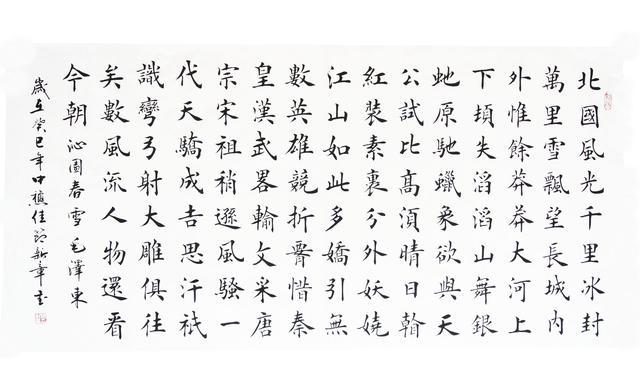 北國風光千里冰封
萬里雪飄望長城內
外惟餘莽莽大河上
下頓失滔滔山舞銀
虵原馳蠟象欲與天
公試比高湏晴日
紅裝素裹分外妖嬈
江山如此多嬌引無
數英雄競折惜秦
皇漢武畧輸文采唐
宗宋祖稍遜風騷一
代天驕成吉思汗祗
識彎弓射大雕俱往
矣數風流人物還看
今朝 沁園春雪毛澤東
歲在癸巳年中秋佳節新章書